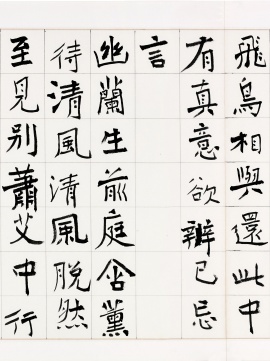 飛鳥相與還此中
有真意欲辨已忘
言
幽蘭生前庭含薰
待清風清風脫然
至見別蕭艾中行